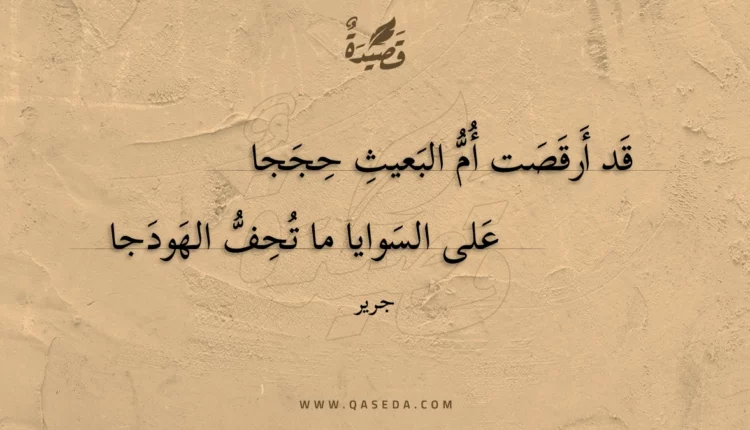 قَصِيْدَةٌ
قَد أَرقَصَت أُمُّ البَعيثِ حِجَجا
عَلى السَوايا ما تُحِفُّ الهَودَجا
جرير
WWW.QASEDA.COM